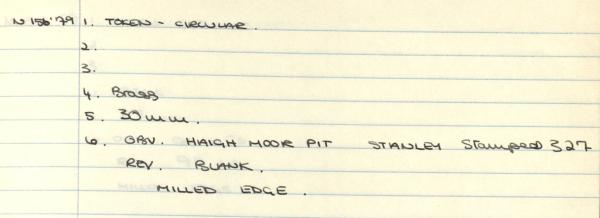 N 156'79 1. TOKEN - CIRCULAR.
2.
3.
4. Brass
5. 30mm.
6. OBV. HAIGH MOOR PIT STANLEY Stamped 327
REV. BLANK.
MILLED EDGE.